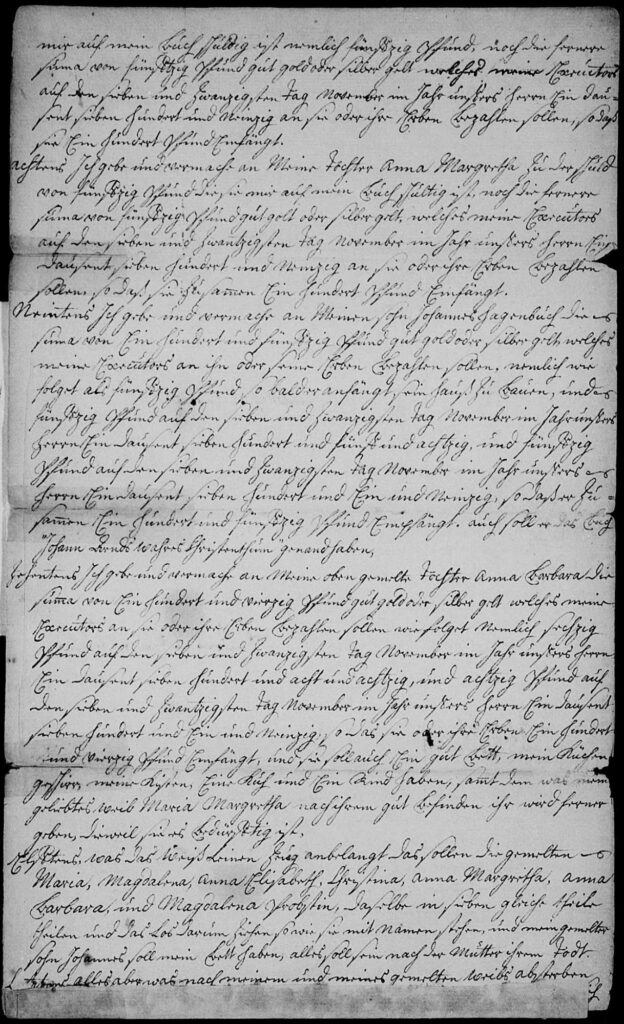 mir auf mein Buch schuldig ist nemlich fünfzig Pfund, noch die fernere
suma von fünfzig Pfund gut gold oder silber gelt welches meine Executors
auf den sieben und zwanzigsten tag November im Jahr unsers Herrn Ein dau=
sent sieben hundert und Neinzig an sie oder ihre Erben bezahlen sollen, so daß
sie Ein hundert Pfund Empfängt.
achtens Ich gebe und vermache an Meine tochter Anna Margretha zu der schuld
von fünfzig Pfund die sie mir auf mein Buch schultig ist, noch die fernere
suma von fünfzig Pfund gut golt oder silber gelt, welches meine Executors
auf den sieben und zwantzigsten tag November im Jahr unsers Herrn Ein
dausent sieben hundert und Neinzig an sie oder ihre Erben bezahlen
sollen, so daß sie zusamen Ein hundert Pfund Empfängt.
Neintens Ich gebe und vermache an Meinen sohn Johannes Hagenbuch die
suma von Ein hundert und fünfzig Pfund gut gold oder silber gelt, welches
meine Executors an ihn oder seine Erben bezahlen sollen, nemlich wie
folget als fünfzig Pfund, so bald er anfängt sein Hauß zu bauen, und
fünfzig Pfund auf den sieben und zwanzigsten tag November im Jahr unsers
Herrn Ein dausent sieben hundert und fünf und achtzig, und fünfzig
Pfund auf den sieben und zwanzigsten tag November im Jahr unsers
Herrn Ein dausent sieben hundert und Ein und Neinzig, so daß er zu=
samen Ein hundert und fünfzig Pfund Empfängt. auch soll er das Buch
Johann Arends wahres Christenthum genand haben,
Zehentens Ich gebe und vermache an Meine oben gemelte tochter Anna Barbara die
suma von Ein hundert und vierzig Pfund gut gold oder silber gelt welches meine
Executors an sie oder ihre Erben bezahlen sollen wie folget Nemlich sechzig
Pfund auf den sieben und zwanzigsten tag November im Jahr unsers Herrn
Ein dausent sieben hundert und acht und achtzig, und achtzig Pfund auf
den sieben und zwantzigsten tag November im Jahr unsers Herrn Ein dausent
sieben hundert und Ein und Neinzig, so das sie oder ihre Erben Ein hundert
und vierzig Pfund Empfängt, und sie soll auch Ein gut Bett, mein Küchen
geschirr, meine Kisten, Eine Kuh und Ein Rind haben, samt dem was mein
geliebtes weib Maria Margretha nach ihrem gut befinden ihr wird ferner
geben, dieweil sie es bedürftig ist,
Elftens, was das weiß leinen zeug anbelangt das sollen die gemelten
Maria, Magdalena, Anna Elisabeth, Christina, Anna Margretha, Anna
Barbara, und Magdalena Probstin, daselbe in sieben gleiche theile
theilen und das Los darum ziehen so wie sie mit Namen stehen, und mein gemelter
sohn Johannes soll mein Bett haben, alles soll sein nach der Mutter ihrem todt.
alles aber was nach meinem und meines gemelten weibs absterben